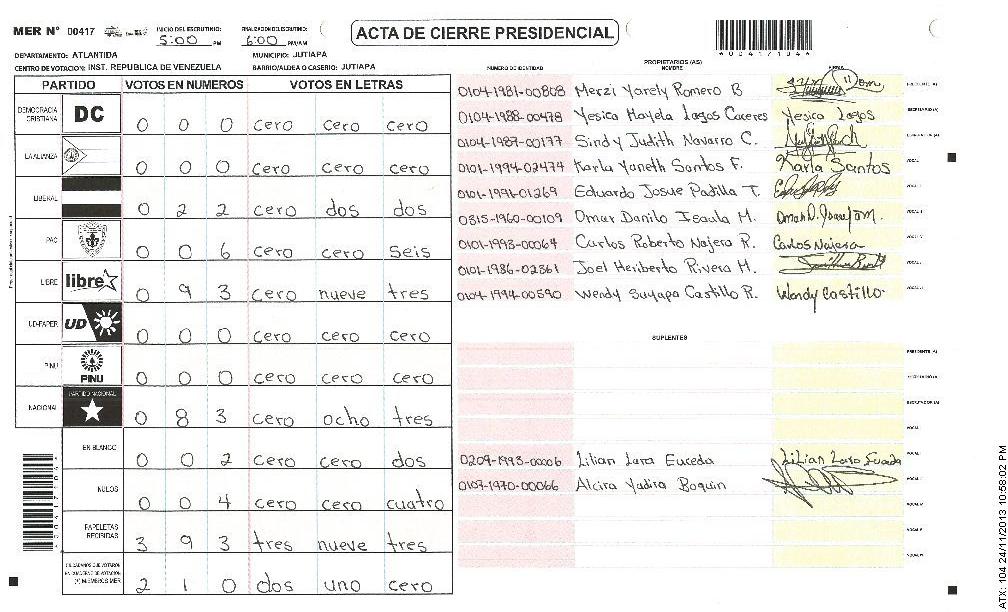 MER Nº 00417 INICIO DEL ESCRUTINIO: 5:00 PM FINALIZACION DEL ESCRUTINIO: 6:00 PM/AM
ACTA DE CIERRE PRESIDENCIAL
DEPARTAMENTO: ATLANTIDA MUNICIPIO: JUTIAPA
CENTRO DE VOTACION: INST. REPUBLICA DE VENEZUELA BARRIO/ALDEA O CASERIO: JUTIAPA
PARTIDO VOTOS EN NUMEROS VOTOS EN LETRAS
DEMOCRACIA CRISTIANA DC 0 0 0 cero cero cero
LA ALIANZA 0 0 0 cero cero cero
LIBERAL 0 2 2 cero dos dos
PAC 0 0 6 cero cero seis
LIBRE libre 0 9 3 cero nueve tres
UD-FAPER UD 0 0 0 cero cero cero
PINU PINU 0 0 0 cero cero cero
NACIONAL PARTIDO NACIONAL 0 8 3 cero ocho tres
EN BLANCO 0 0 2 cero cero dos
NULOS 0 0 4 cero cero cuatro
PAPELETAS RECIBIDAS 3 9 3 tres nueve tres
CIUDADANOS QUE VOTARON EN CUADERNO DE VOTACION (+) MIEMBROS MER 2 1 0 dos uno cero
PROPIETARIOS (AS)
NUMERO DE IDENTIDAD NOMBRE FIRMA
0104-1981-00808 Merzi Yarely Romero B PRESIDENTE (A)
0104-1988-00478 Yesica Hayela Lagos Caceres Yesica Lagos SECRETARIO (A)
0104-1987-00177 Sindy Judith Navarro C. ESCRUTADOR (A)
0101-1994-02474 Karla Yaneth Santos F. Karla Santos VOCAL I
0101-1991-01269 Eduardo Josue Padilla T. VOCAL
0315-1960-00109 Omar Danilo Isaula M. VOCAL
0101-1993-00064 Carlos Roberto Najera R. Carlos Najera VOCAL
0101-1986-02361 Joel Heriberto Rivera M. VOCAL
0104-1994-00590 Wendy Suyapa Castillo R. Wendy Castillo VOCAL
SUPLENTES
PRESIDENTE (A)
SECRETARIO (A)
ESCRUTADOR (A)
VOCAL
0209-1993-00006 Lilian Lara Euceda VOCAL
0107-1970-00066 Alcira Yadira Boquin VOCAL
VOCAL
VOCAL
VOCAL
ATX: 104 24/11/2013 10:58:02 PM